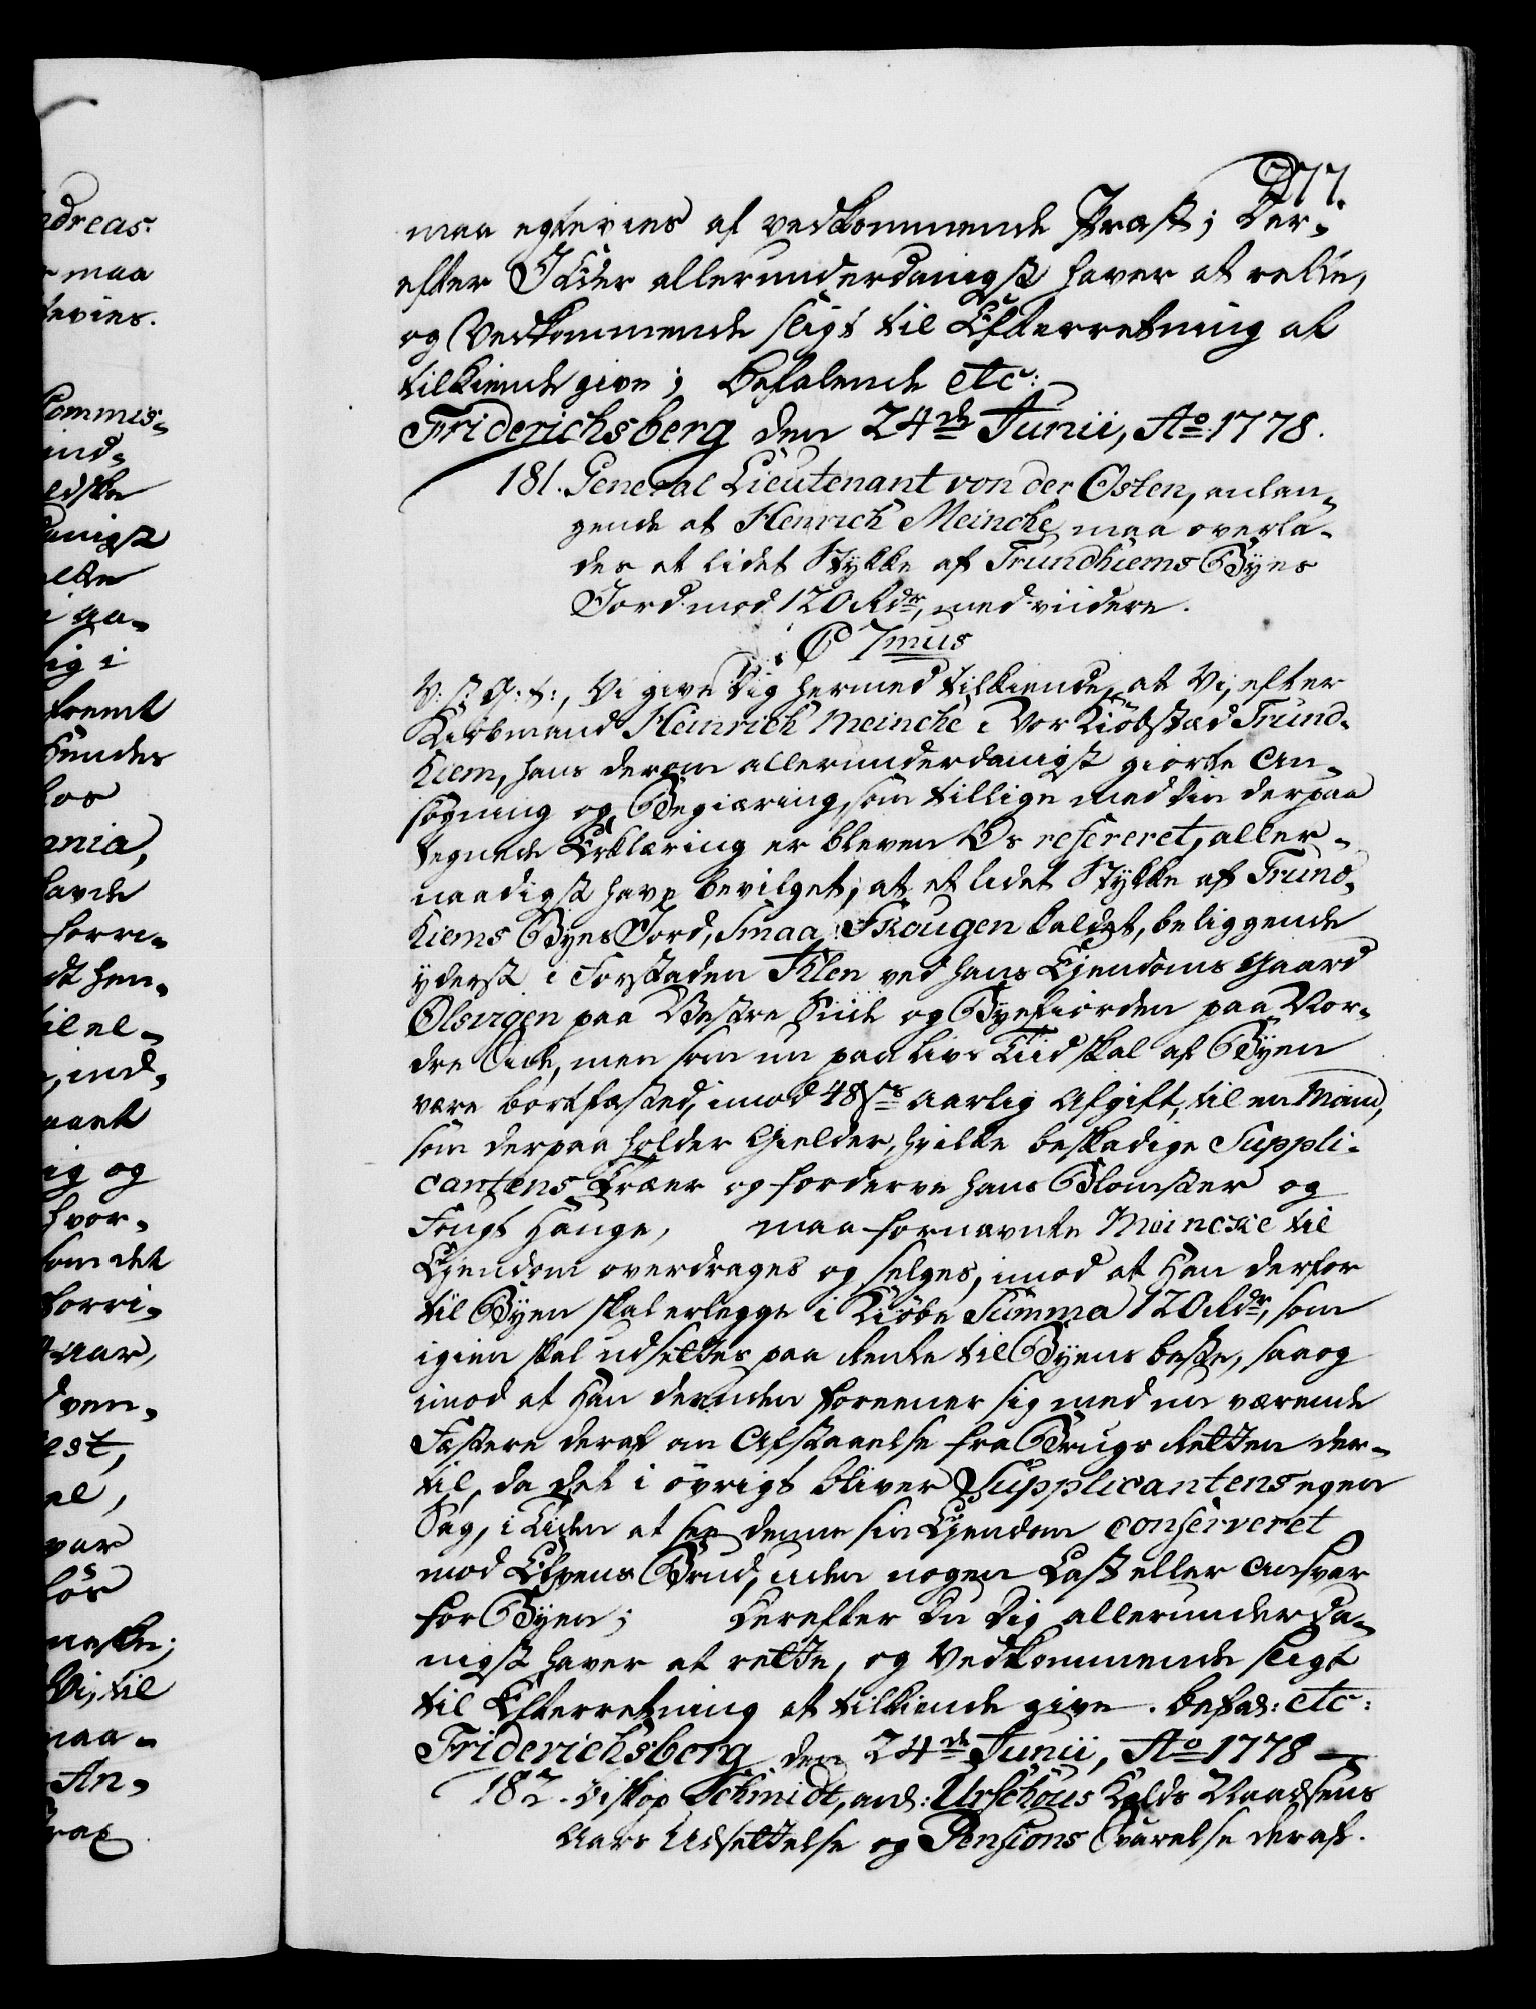 277.
maa egtevies af vedkommende Præst; Der-
efter I Eder allerunderdanigst haver at rette,
og Vedkommende sligt til Efterretning at
tilkiende give; Befalende etc:
Friderichsberg den 24de Junii, Ao 1778.
181. General Lieutenant von der Osten, anlan-
gende at Henrich Meincke maa overla-
des et lidet Stykke af Trundhiems Byes
Jord mod 120 Rdr, med viidere.
C 7mus
V: s: G: t:, Vi give Dig hermed tilkiende, at Vi, efter
Kiøbmand Heinrich Meincke i Vor Kiøbstæd Trund-
hiem, hans derom allerunderdanigst giorte An-
søgning og Begiæring, som tillige med Din derpaa
tegnede Erklæring er bleven Os refereret, aller-
naadigst have bevilget, at et lidet Stykke af Trund-
hiems Byes Jord, Smaa Skougen kaldet, beliggende
yderst i Forstaden Ihlen ved hans Ejendoms Gaard
Olsvigen paa Vestre Siide og Byefiorden paa Nor-
dre Side, men som nu paa livs Tiid skal af Byen
være bortfæsted, imod 48 s aarlig Afgift, til en Mand,
som derpaa holder Gieder, hvilke beskadige Suppli-
cantens Træer og forderve hans Blomster og
Frugt Hauge, maa fornævnte Meincke til
Ejendom overdrages og selges, imod at Han derfor
til Byen skal erlegge i Kiøbe Summa 120 Rdr, som
igien skal udsættes paa Rente til Byens beste, saa og
imod at Han desuden foreener sig med nu værende
Fæstere deraf om Afstaaelse fra Brugs Retten der-
til, da det i øvrigt bliver Supplicantens egen
Sag, i Tiden at see denne sin Ejendom conserveret
mod Elvens Brud, uden nogen Last eller Ansvar
for Byen; Derefter Du Dig allerunderda-
nigst haver at rette, og Vedkommende sligt
til Efterretning at tilkiende give. Befal: etc:
Friderichsberg den 24de Junii, Ao 1778
182. Biskop Schmidt, anl: Urschous Kalds Naadsens
Aars Udsettelse og Pensions Svarelse deraf.